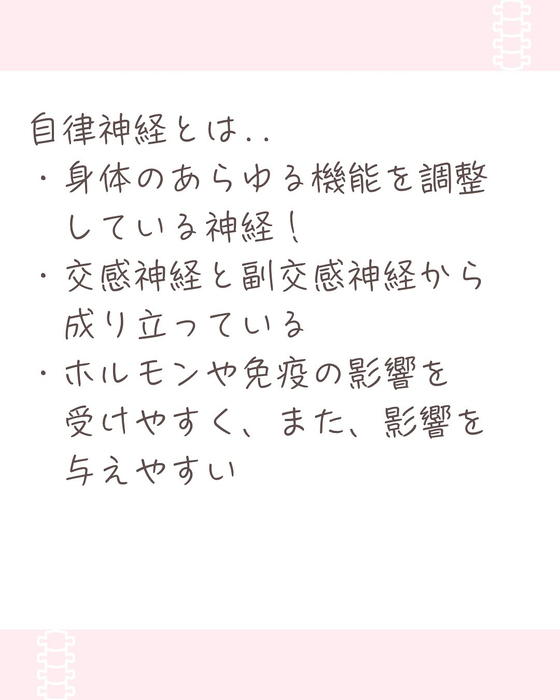 自律神経とは..
・身体のあらゆる機能を調整
している神経！
・交感神経と副交感神経から
成り立っている
・ホルモンや免疫の影響を
受けやすく、また、影響を
与えやすい